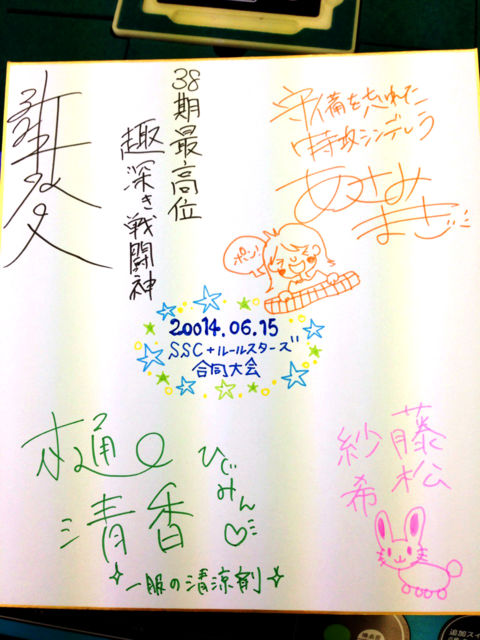 38期最高位
趣深き戦闘神
守備を忘れた
特攻シンデレラ
あさみ
ポン!
20014.06.15
SSC+ルールスターズ
合同大会
樋口
清香
ひぐみん♡
一服の清涼剤
藤松
紗希